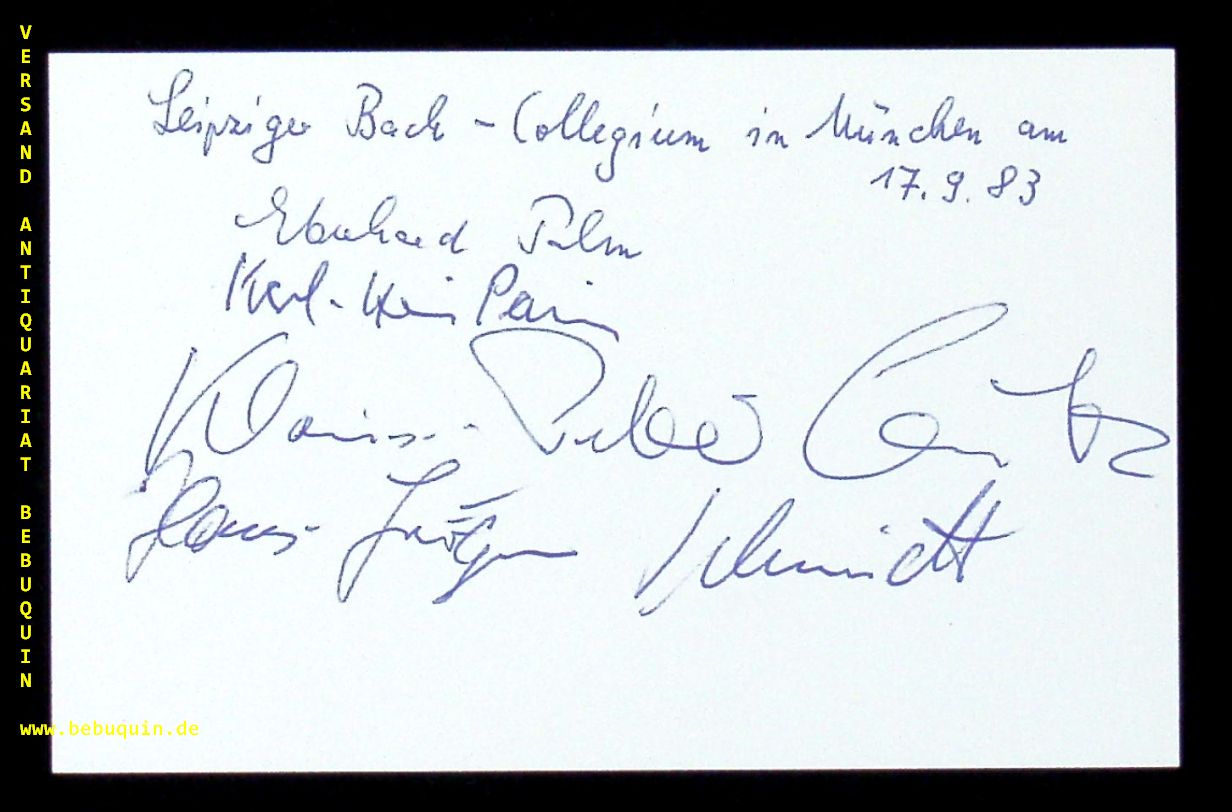 VERSAND ANTIQUARIAT BEBUQUIN
www.bebuquin.de
Leipziger Bach-Collegium in München am
17.9.83
Eberhard Palm
Karl-Heinz
Klaus-Peter
Hans-Jürgen Schmidt